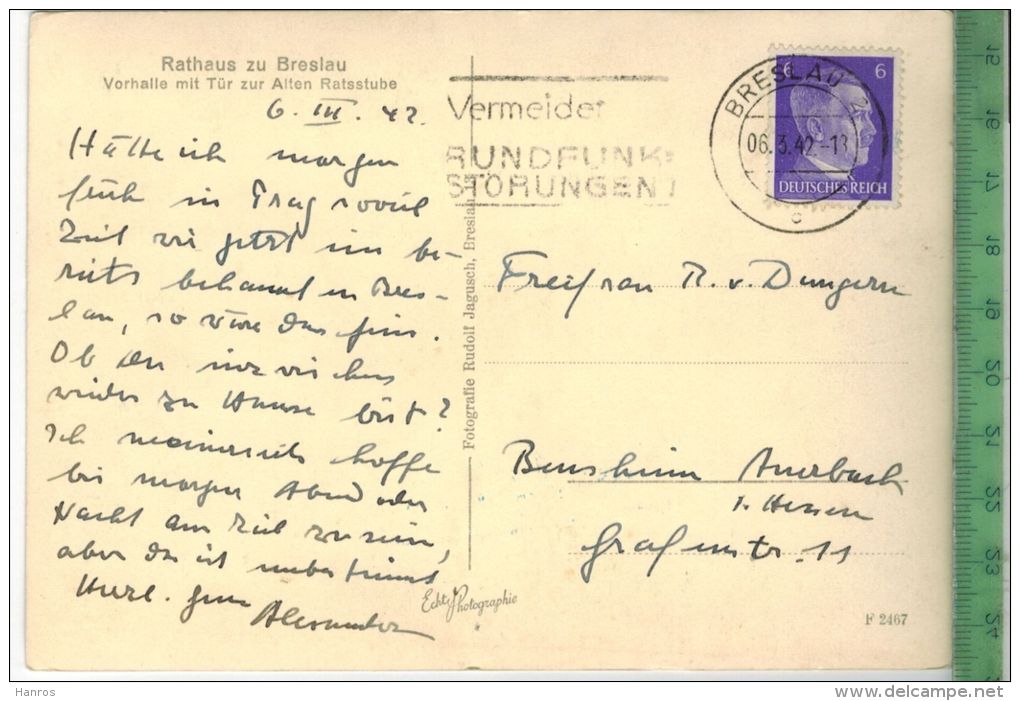 Rathaus zu Breslau
Vorhalle mit Tür zur Alten Ratsstube
6. III. 42.
Hätte ich morgen
früh in Prag soviel
Zeit wie jetzt im be-
reits bekannten Bres-
lau, so wäre das fein.
Ob Du inzwischen
wieder zu Hause bist?
Ich meinerseits hoffe
bis morgen Abend oder
Nacht am Ziel zu sein,
aber das ist unbestimmt
Herzl. Alexander
Echte Photographie
Fotografie Rudolf Jagusch, Breslau
Vermeidet
RUNDFUNK-
STÖRUNGEN!
BRESLAU 2
06.3.42.-13
c
6 6
DEUTSCHES REICH
Freifrau R. v. Dungern
Bensheim Auerbach
i. Hessen
Grafenstr. 11
F 2467
15
16
17
18
19
20
21
22
23
24
Hanros
www.delcampe.net